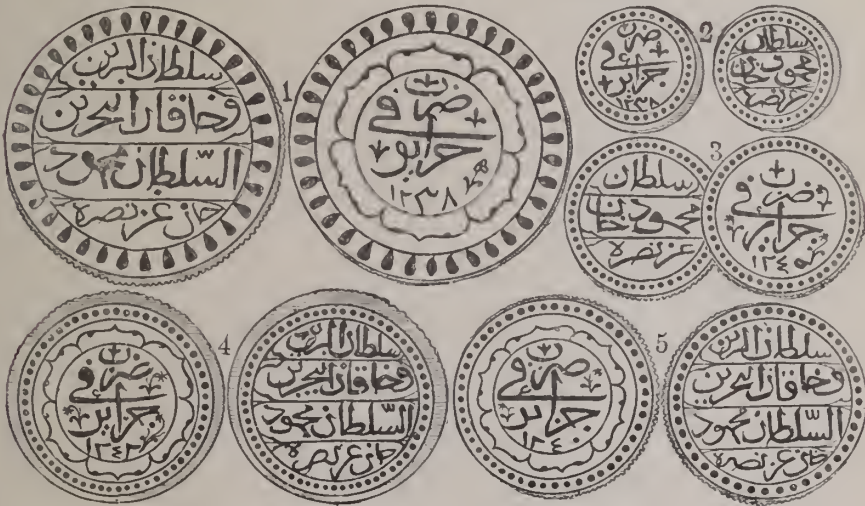 1
سلطان البرين
وخاقان البحرين
السلطان محمود
خان عز نصره
ضرب
في
جزاير
١٢٣٨
2
ضرب
في
جزاير
١٢٣٨
سلطان
محمود خان
عز نصره
3
سلطان
محمود خان
عز نصره
ضرب
في
جزاير
١٢٤٠
4
ضرب
في
جزاير
١٢٤٣
سلطان البرين
وخاقان البحرين
السلطان محمود
خان عز نصره
5
ضرب
في
جزاير
١٢٤
سلطان البرين
وخاقان البحرين
السلطان محمود
خان عز نصره